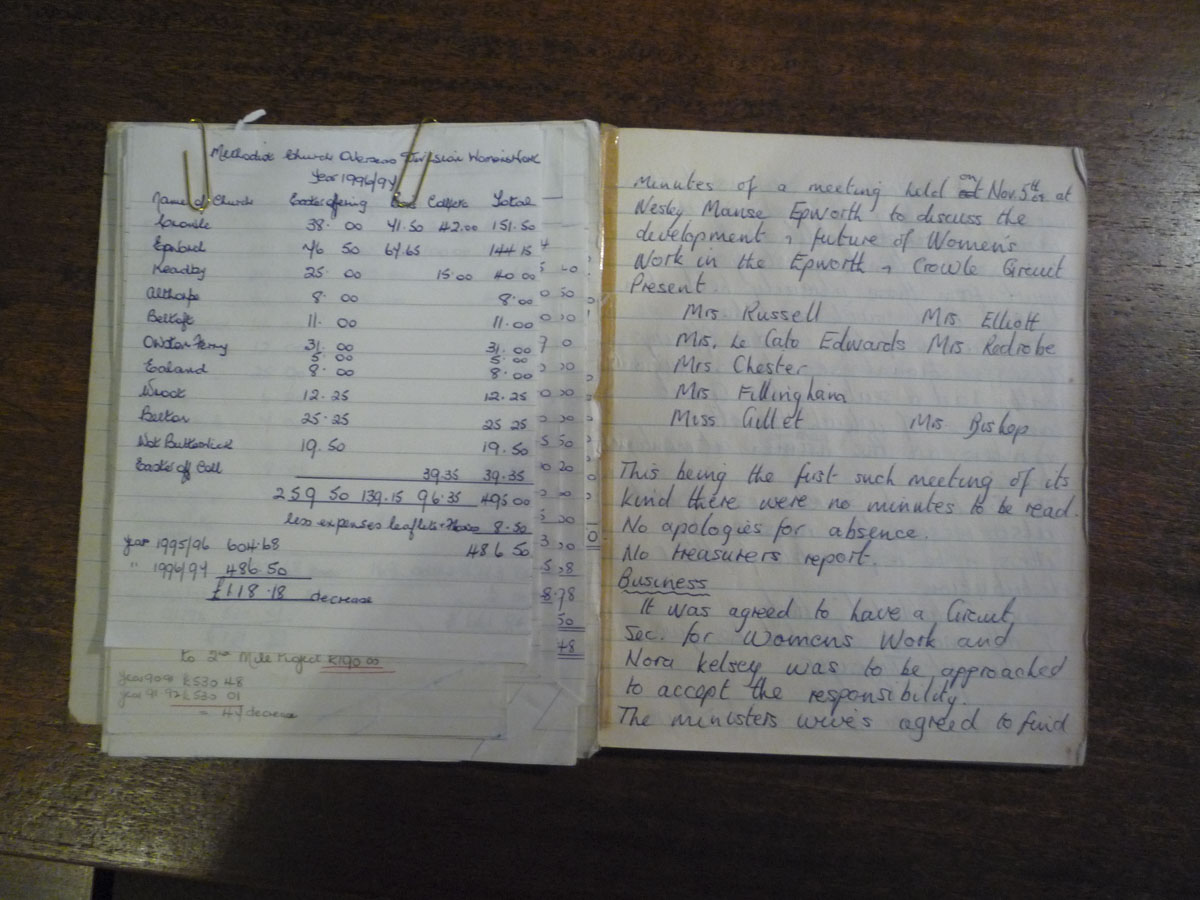 Methodist Church Overseas Division Womens Work
Year 1996/97
Name of Church Easter offering Box Coffees Total
Crowle 38.00 71.50 42.00 151.50
Epworth 76 50 67.65 144 15
Keadby 25.00 15.00 40 00
Althorpe 8.00 8.00
Beltoft 11.00 11.00
Owston Ferry 31.00 31.00
5.00 5.00
Ealand 8.00 8.00
Wroot 12.25 12.25
Belton 25.25 25 25
West Butterwick 19.50 19.50
Easter off Coll 39.35 39.35
259 50 139.15 96.35 495 00
less expenses leaflets 8.50
486 50
Year 1995/96 604.68
" 1996/97 486.50
£118.18 decrease
to 2nd Mile Project £190 00
year 90 91 £530 48
year 91 92 £530 01
= 47 decrease
Minutes of a meeting held on Nov 5th at
Wesley Manse Epworth to discuss the
development & future of Women's
Work in the Epworth & Crowle Circuit
Present
Mrs. Russell Mrs Elliott
Mrs. Le Cato Edwards Mrs. Redrobe
Mrs Chester
Mrs Fillingham
Miss Gillet Mrs Bishop
This being the first such meeting of its
kind there were no minutes to be read.
No apologies for absence.
No treasurers report.
Business
It was agreed to have a Circuit
Sec. for Womens Work and
Nora Kelsey was to be approached
to accept the responsibility.
The ministers wive's agreed to find